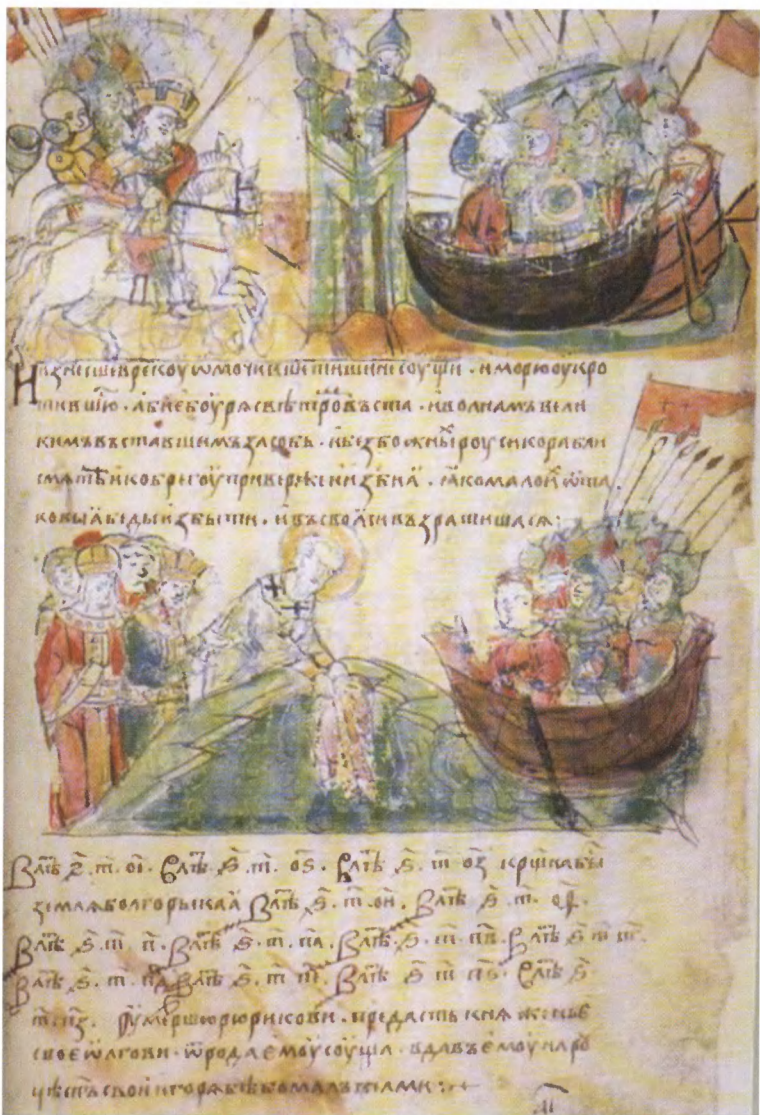 изнесше в рекоу ѡмочивше тишине соущи · и морю оукро
тившюⷭ · абие боурѧ с вѣтроⷨ въста · и волнамъ вели
кимъ въставшимъ засобь · и безбожныⷯ роуси корабли
смѧте и к берегоу приверже и изби ꙗ · ꙗко мало иⷯ ѿ та
ковыа беды избыти · и въ своꙗси възратишасѧ :
В лѣⷮ ҂ѕ҃ · т҃ · о҃є · В лѣⷮ ҂ѕ҃ · т҃ · о҃ѕ · В лѣⷮ ҂ѕ҃ · т҃ о҃з крⷭщна быⷭ
землѧ болгорьскаꙗ В лѣⷮ ҂ѕ҃ · т҃ · о҃и · В лѣⷮ ҂ѕ҃ · т҃ · о҃ѳ ·
В лѣⷮ ҂ѕ҃ · т҃ п҃ · В лѣⷮ ҂ѕ҃ · т҃ · п҃а · В лѣⷮ ҂ѕ҃ · т҃ · п҃в · В лѣⷮ ҂ѕ҃ т҃ п҃г ·
В лѣⷮ ҂ѕ҃ · т҃ · п҃д В лѣⷮ ҂ѕ҃ · т҃ п҃є · В лѣⷮ ҂ѕ҃ т҃ п҃ѕ · В лѣⷮ ҂ѕ҃
т҃ п҃з · Оумершю рюрикови · предасть кнѧженье
свое ѡлгови · ѿ рода емоу соуща · вдавъ емоу на роу
цѣ сн҃ъ свои игорѧ бѣ бо малъ велми :